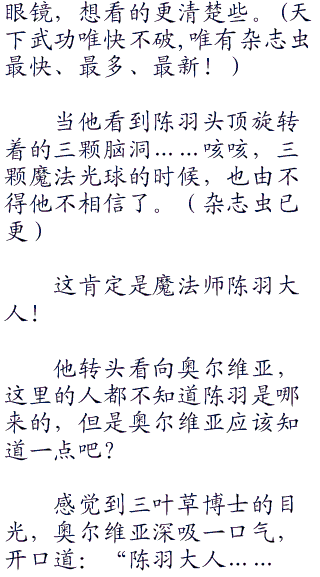 眼镜，想看的更清楚些。(天
下武功唯快不破,唯有杂志虫
最快、最多、最新！)
当他看到陈羽头顶旋转
着的三颗脑洞……咳咳，三
颗魔法光球的时候，也由不
得他不相信了。（杂志虫已
更）
这肯定是魔法师陈羽大
人！
他转头看向奥尔维亚，
这里的人都不知道陈羽是哪
来的，但是奥尔维亚应该知
道一点吧？
感觉到三叶草博士的目
光，奥尔维亚深吸一口气，
开口道：“陈羽大人……